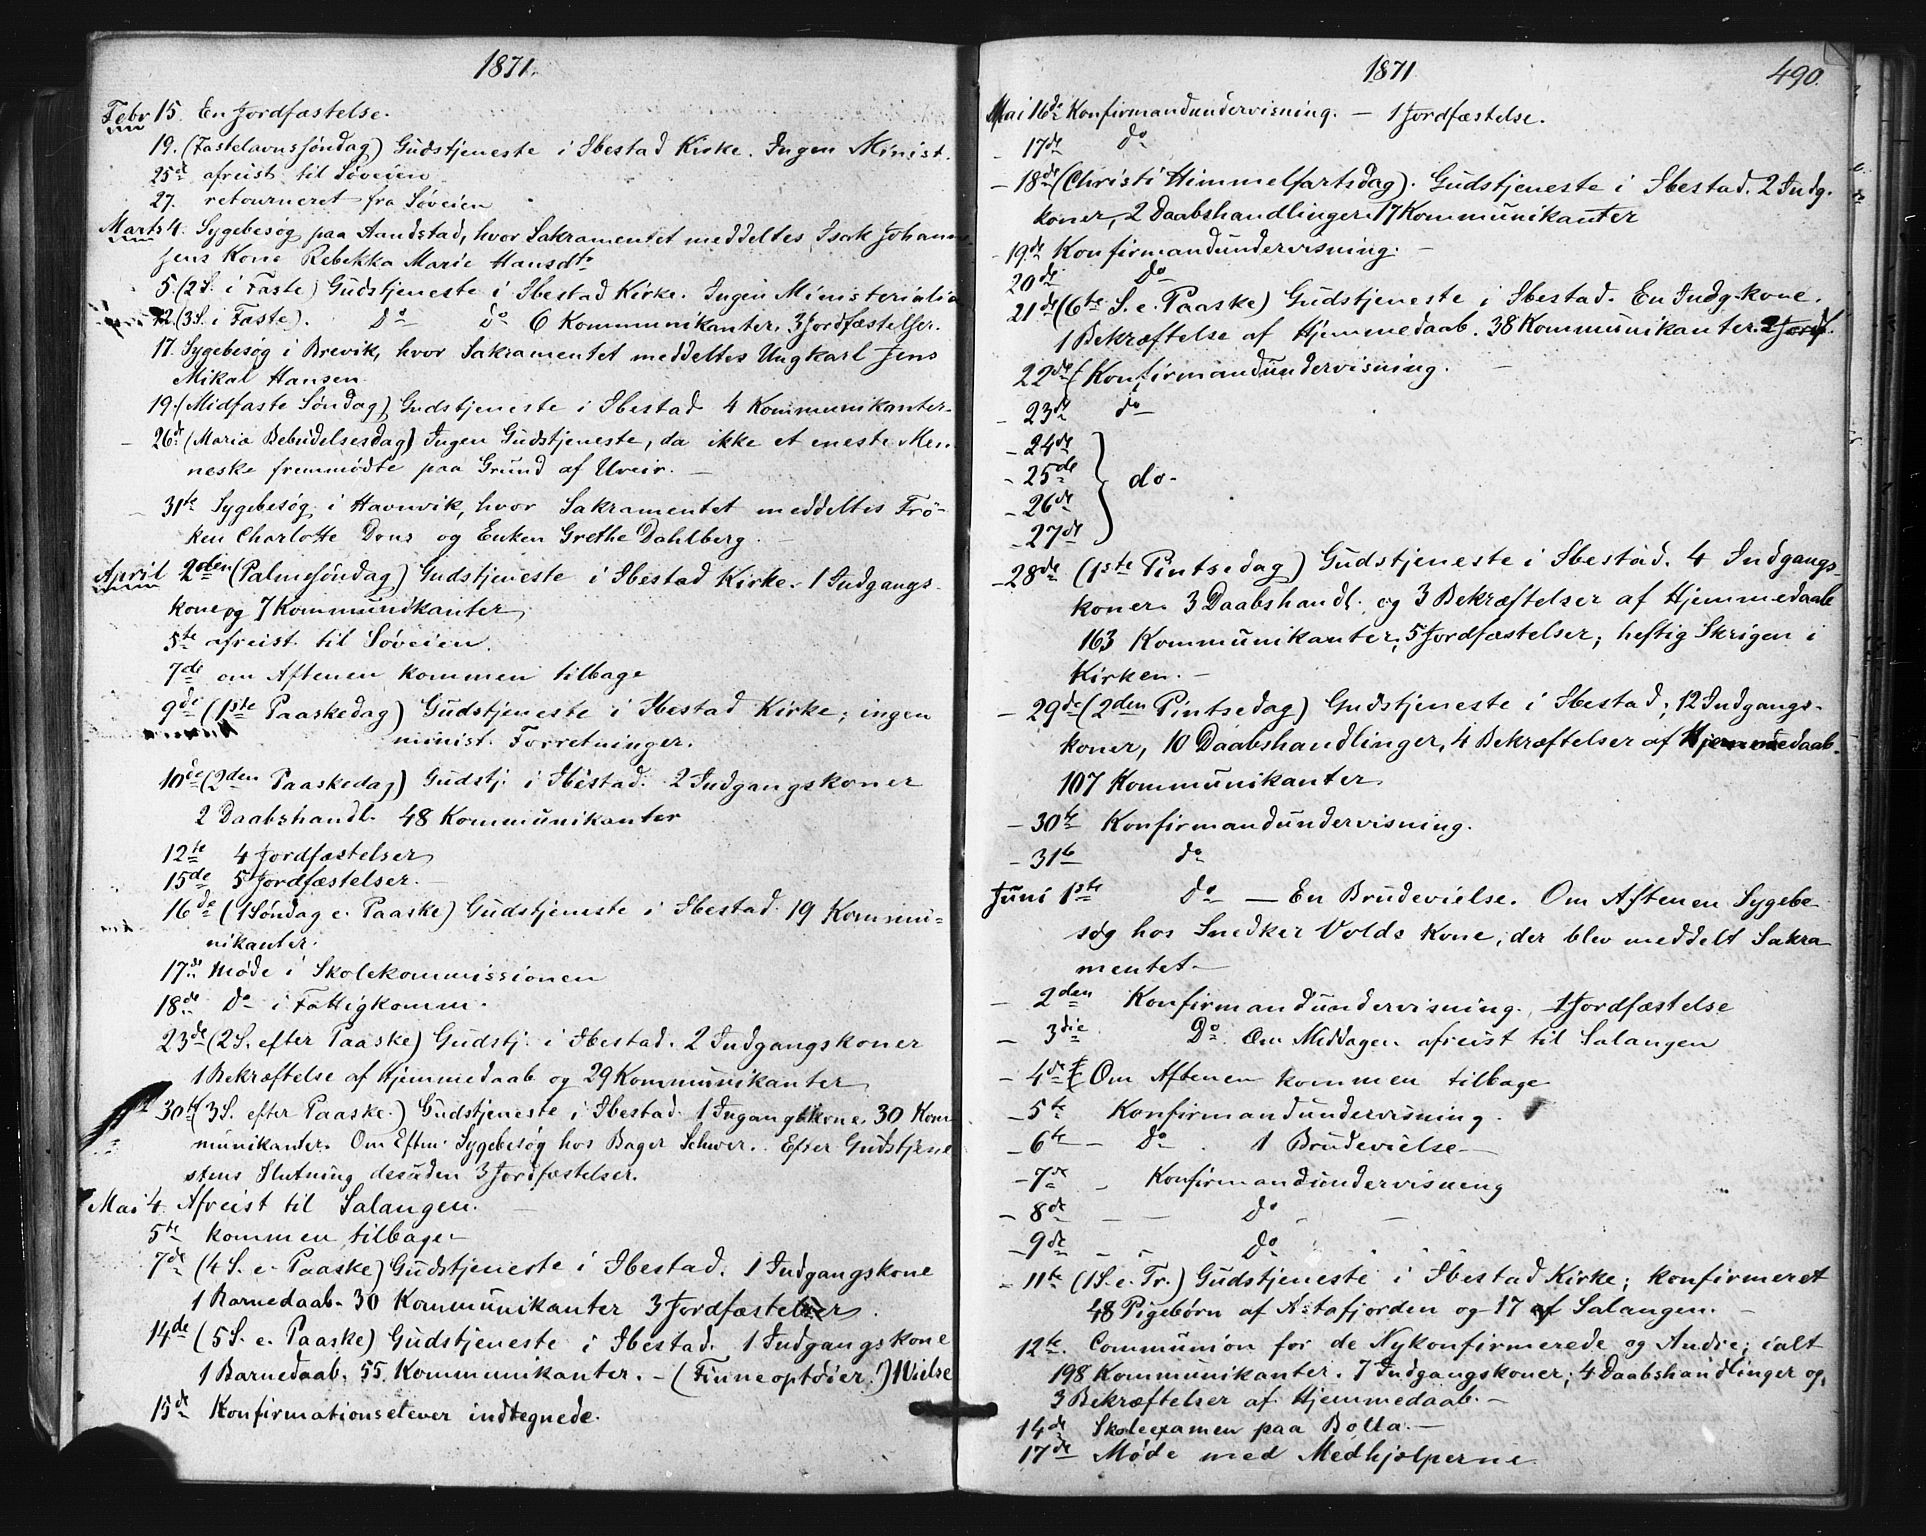 1871.
Febr 15. En Jordfæstelse.
19. (Fastelavnssöndag) Gudstjeneste i Ibestad Kirke. Ingen Minist.
25d afreist til Søveien
27. retourneret fra Søveien
Marts 4. Sygebesøg paa Aandstad, hvor Sakramentet meddeltes Isak Johann-
sens Kone Rebekka Marie Hansdtr
5. (2 S. i Faste) Gudstjeneste i Ibestad Kirke. Ingen Ministerialia
12. (3 S. i Faste). Do Do 6 Kommunikanter. 3 Jordfæstelser.
17. Sygebesøg i Brevik, hvor Sakramentet meddeltes Ungkarl Jens
Mikal Hansen.
19. (Midfaste Søndag) Gudstjeneste i Ibestad 4 Kommunikanter.
- 26de (Maria Bebudelsesdag) Ingen Gudstjeneste, da ikke et eneste Men-
neske fremmødte paa Grund af Uveir. -
- 31te Sygebesøg i Havnvik, hvor Sakramentet meddeltes Frö-
ken Charlotte Dons og Enken Grethe Dahlberg.
April 2den (Palmesöndag) Gudstjeneste i Ibestad Kirke. 1 Indgangs-
kone og 7 Kommunikanter
5te afreist til Søveien.
7de om Aftenen kommen tilbage
9de (1ste Paaskedag) Gudstjeneste i Ibestad Kirke; ingen
minist. Forretninger.
10de (2den Paaskedag) Gudstj. i Ibestad. 2 Indgangskoner
2 Daabshandl. 48 Kommunikanter
12te 4 Jordfæstelser
15de 5 Jordfæstelser. -
16de (1 Söndag e. Paaske) Gudstjeneste i Ibestad. 19 Kommu-
nikanter.
17de Møde i Skolekommissionen
18de Do i Fattigkomm.
23de (2 S. efter Paaske) Gudstj. i Ibestad. 2 Indgangskoner
1 Bekræftelse af Hjemmedaab og 29 Kommunikanter
30te (3 S. efter Paaske.) Gudstjeneste i Ibestad. 1 Ingangskone. 30 Kom
munikanter. Om Eftm. Sygebesøg hos Bager Schwer. Efter Gudstjene
stens Slutning desuden 3 Jordfæstelser.
Mai 4. Afreist til Salangen.
5te kommen tilbage
7de (4 S. e. Paaske) Gudstjeneste i Ibestad. 1 Indgangskone
1 Barnedaab. 30 Kommunikanter 3 Jordfæstelser.
14de (5 S. e. Paaske) Gudstjeneste i Ibestad. 1 Indgangskone
1 Barnedaab. 55 Kommunikanter. - (Finneoptøier!) 1 Vielse
15de Konfirmationselever indtegnede.
1871
490.
Mai 16de Konfirmandundervisning. - 1 Jordfæstelse.
- 17de do
- 18de (Christi Himmelfartsdag). Gudstjeneste i Ibestad. 2 Indg.
koner, 2 Daabshandlinger. 17 Kommunikanter
- 19de Konfirmandundervisning. -
20de Do
21de (6te S. e. Paaske) Gudstjeneste i Ibestad. En Indg.kone.
1 Bekræftelse af Hjemmedaab. 38 Kommunikanter. 2 Jordf.
22de (Konfirmandundervisning.
- 23de do
- 24de
- 25de do.
- 26de
- 27de
- 28de (1ste Pintsedag) Gudstjeneste i Ibestad. 4 Indgangs-
koner. 3 Daabshandl. og 3 Bekræftelser af Hjemmedaab
163 Kommunikanter, 5 Jordfæstelser; heftig Skrigen i
Kirken. -
- 29de (2den Pintsedag) Gudstjeneste i Ibestad; 12 Indgangs-
koner, 10 Daabshandlinger, 4 Bekræftelser af Hjemmedaab.
107 Kommunikanter
- 30te Konfirmandundervisning.
- 31te do
Juni 1ste Do - En Brudevielse. Om Aftenen Sygebe-
søg hos Snedker Volds Kone, der blev meddelt Sakra
mentet. -
- 2den Konfirmandundervisning. 1 Jordfæstelse
- 3die Do. Om Middagen afreist til Salangen
- 4de Om Aftenen kommen tilbage
- 5te Konfirmandundervisning.
- 6te - Do 1 Brudevielse -
- 7de - Konfirmandundervisning
- 8de - - Do
- 9de - - Do
- 11te (1 S. e. Tr.) Gudstjeneste i Ibestad Kirke; konfirmeret
48 Pigebørn af Astafjorden og 17 af Salangen. -
12te. Communion for de Nykonfirmerede og Andre; ialt
198 Kommunikanter. 7 Indgangskoner; 4 Daabshandlinger og
3 Bekræftelser af Hjemmedaab. -
14de Skoleexamen paa Bolla. -
17de Møde med Medhjælperne